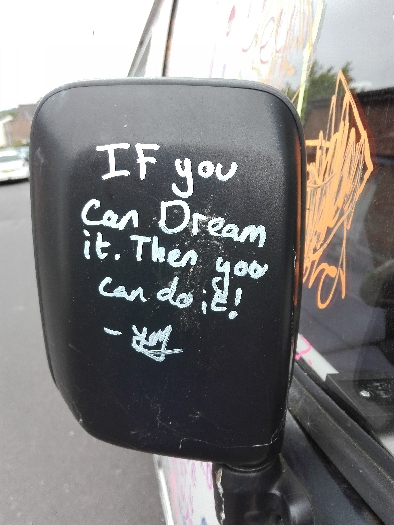 IF you
Can Dream
it. Then you
can do it!